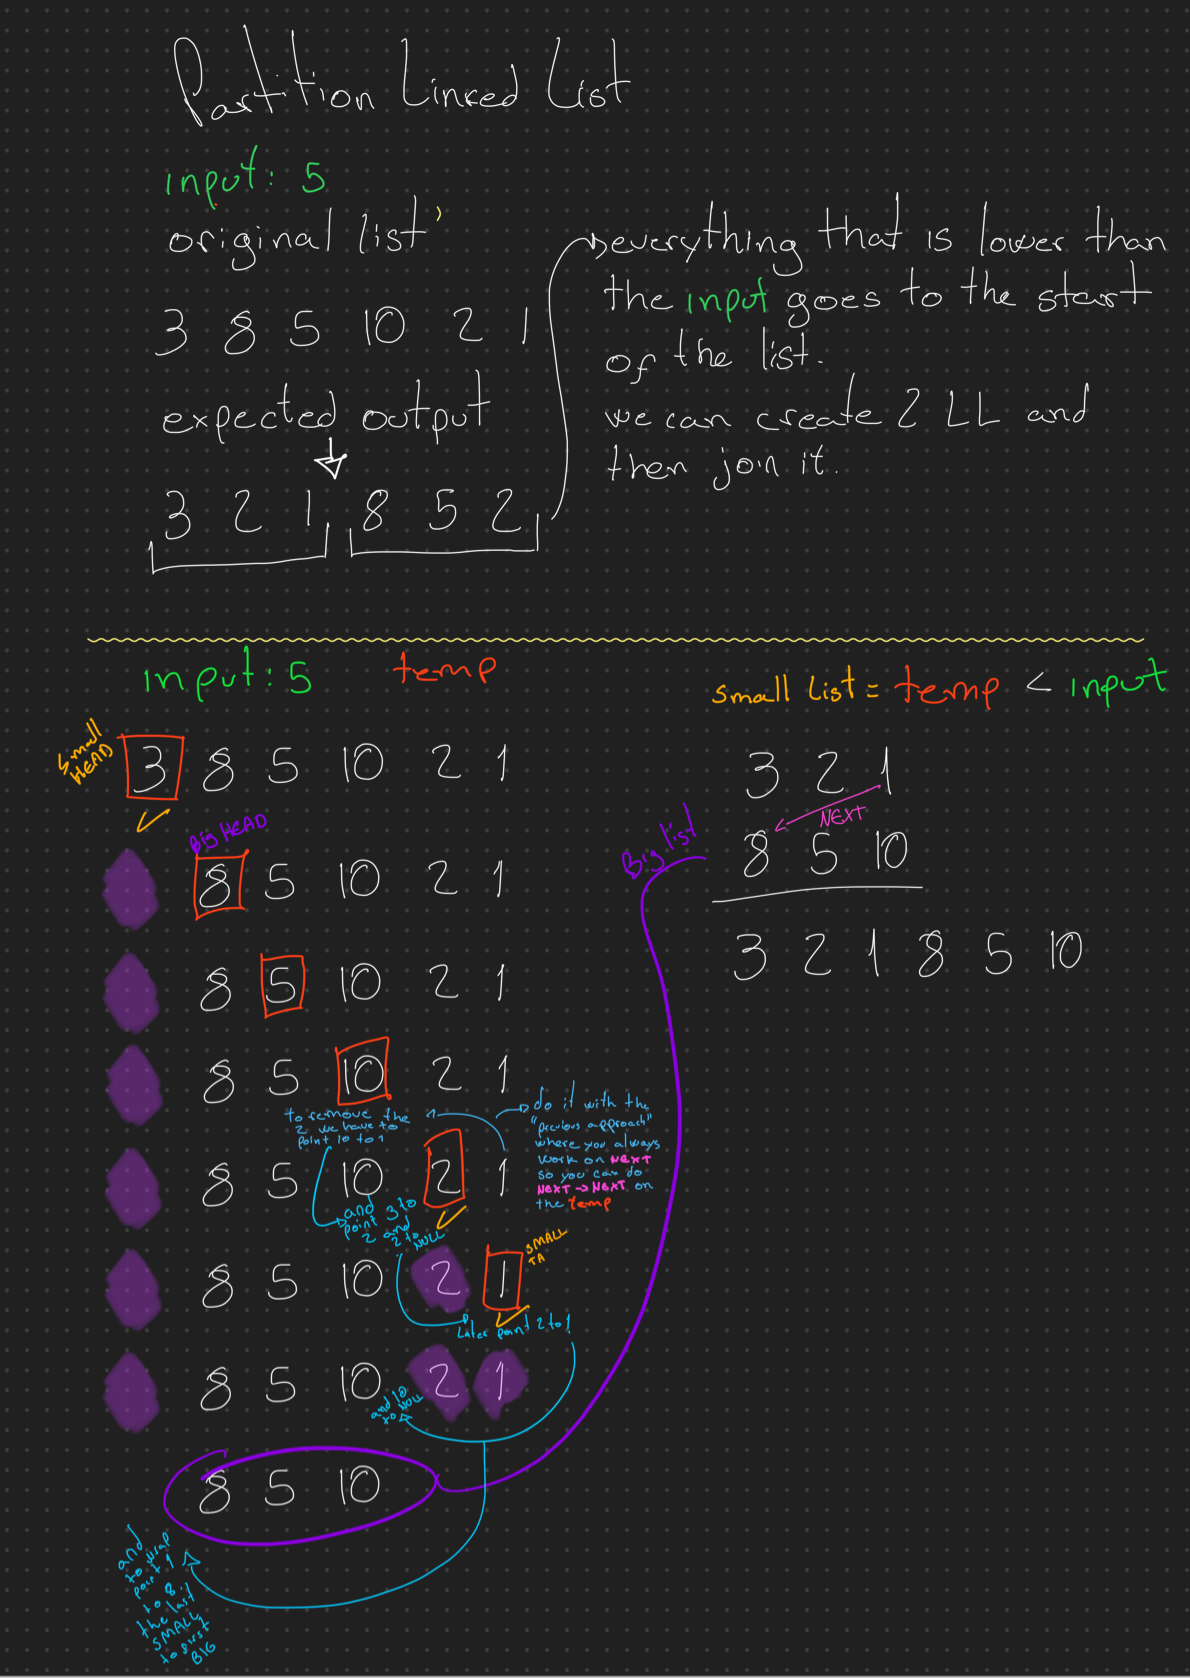 Partition Linked List
input: 5
original list
3 8 5 10 2 1
expected output
3 2 1 8 5 2
everything that is lower than
the input goes to the start
of the list.
we can create 2 LL and
then join it.
input: 5 temp
small HEAD
3 8 5 10 2 1
Big HEAD
8 5 10 2 1
8 5 10 2 1
8 5 10 2 1
to remove the
2 we have to
point 10 to 1
do it with the
"previous approach"
where you always
work on NEXT
so you can do
NEXT -> NEXT on
the temp
8 5 10 2 1
and
point 3 to
2 and
2 to NULL
SMALL
TA
8 5 10 2 1
Later point 2 to 1
8 5 10 2 1
and 10
to NULL
8 5 10
and
to wrap
point 1
to 8:
the last
SMALL
to first
BIG
small list = temp < input
3 2 1
NEXT
Big list
8 5 10
3 2 1 8 5 10